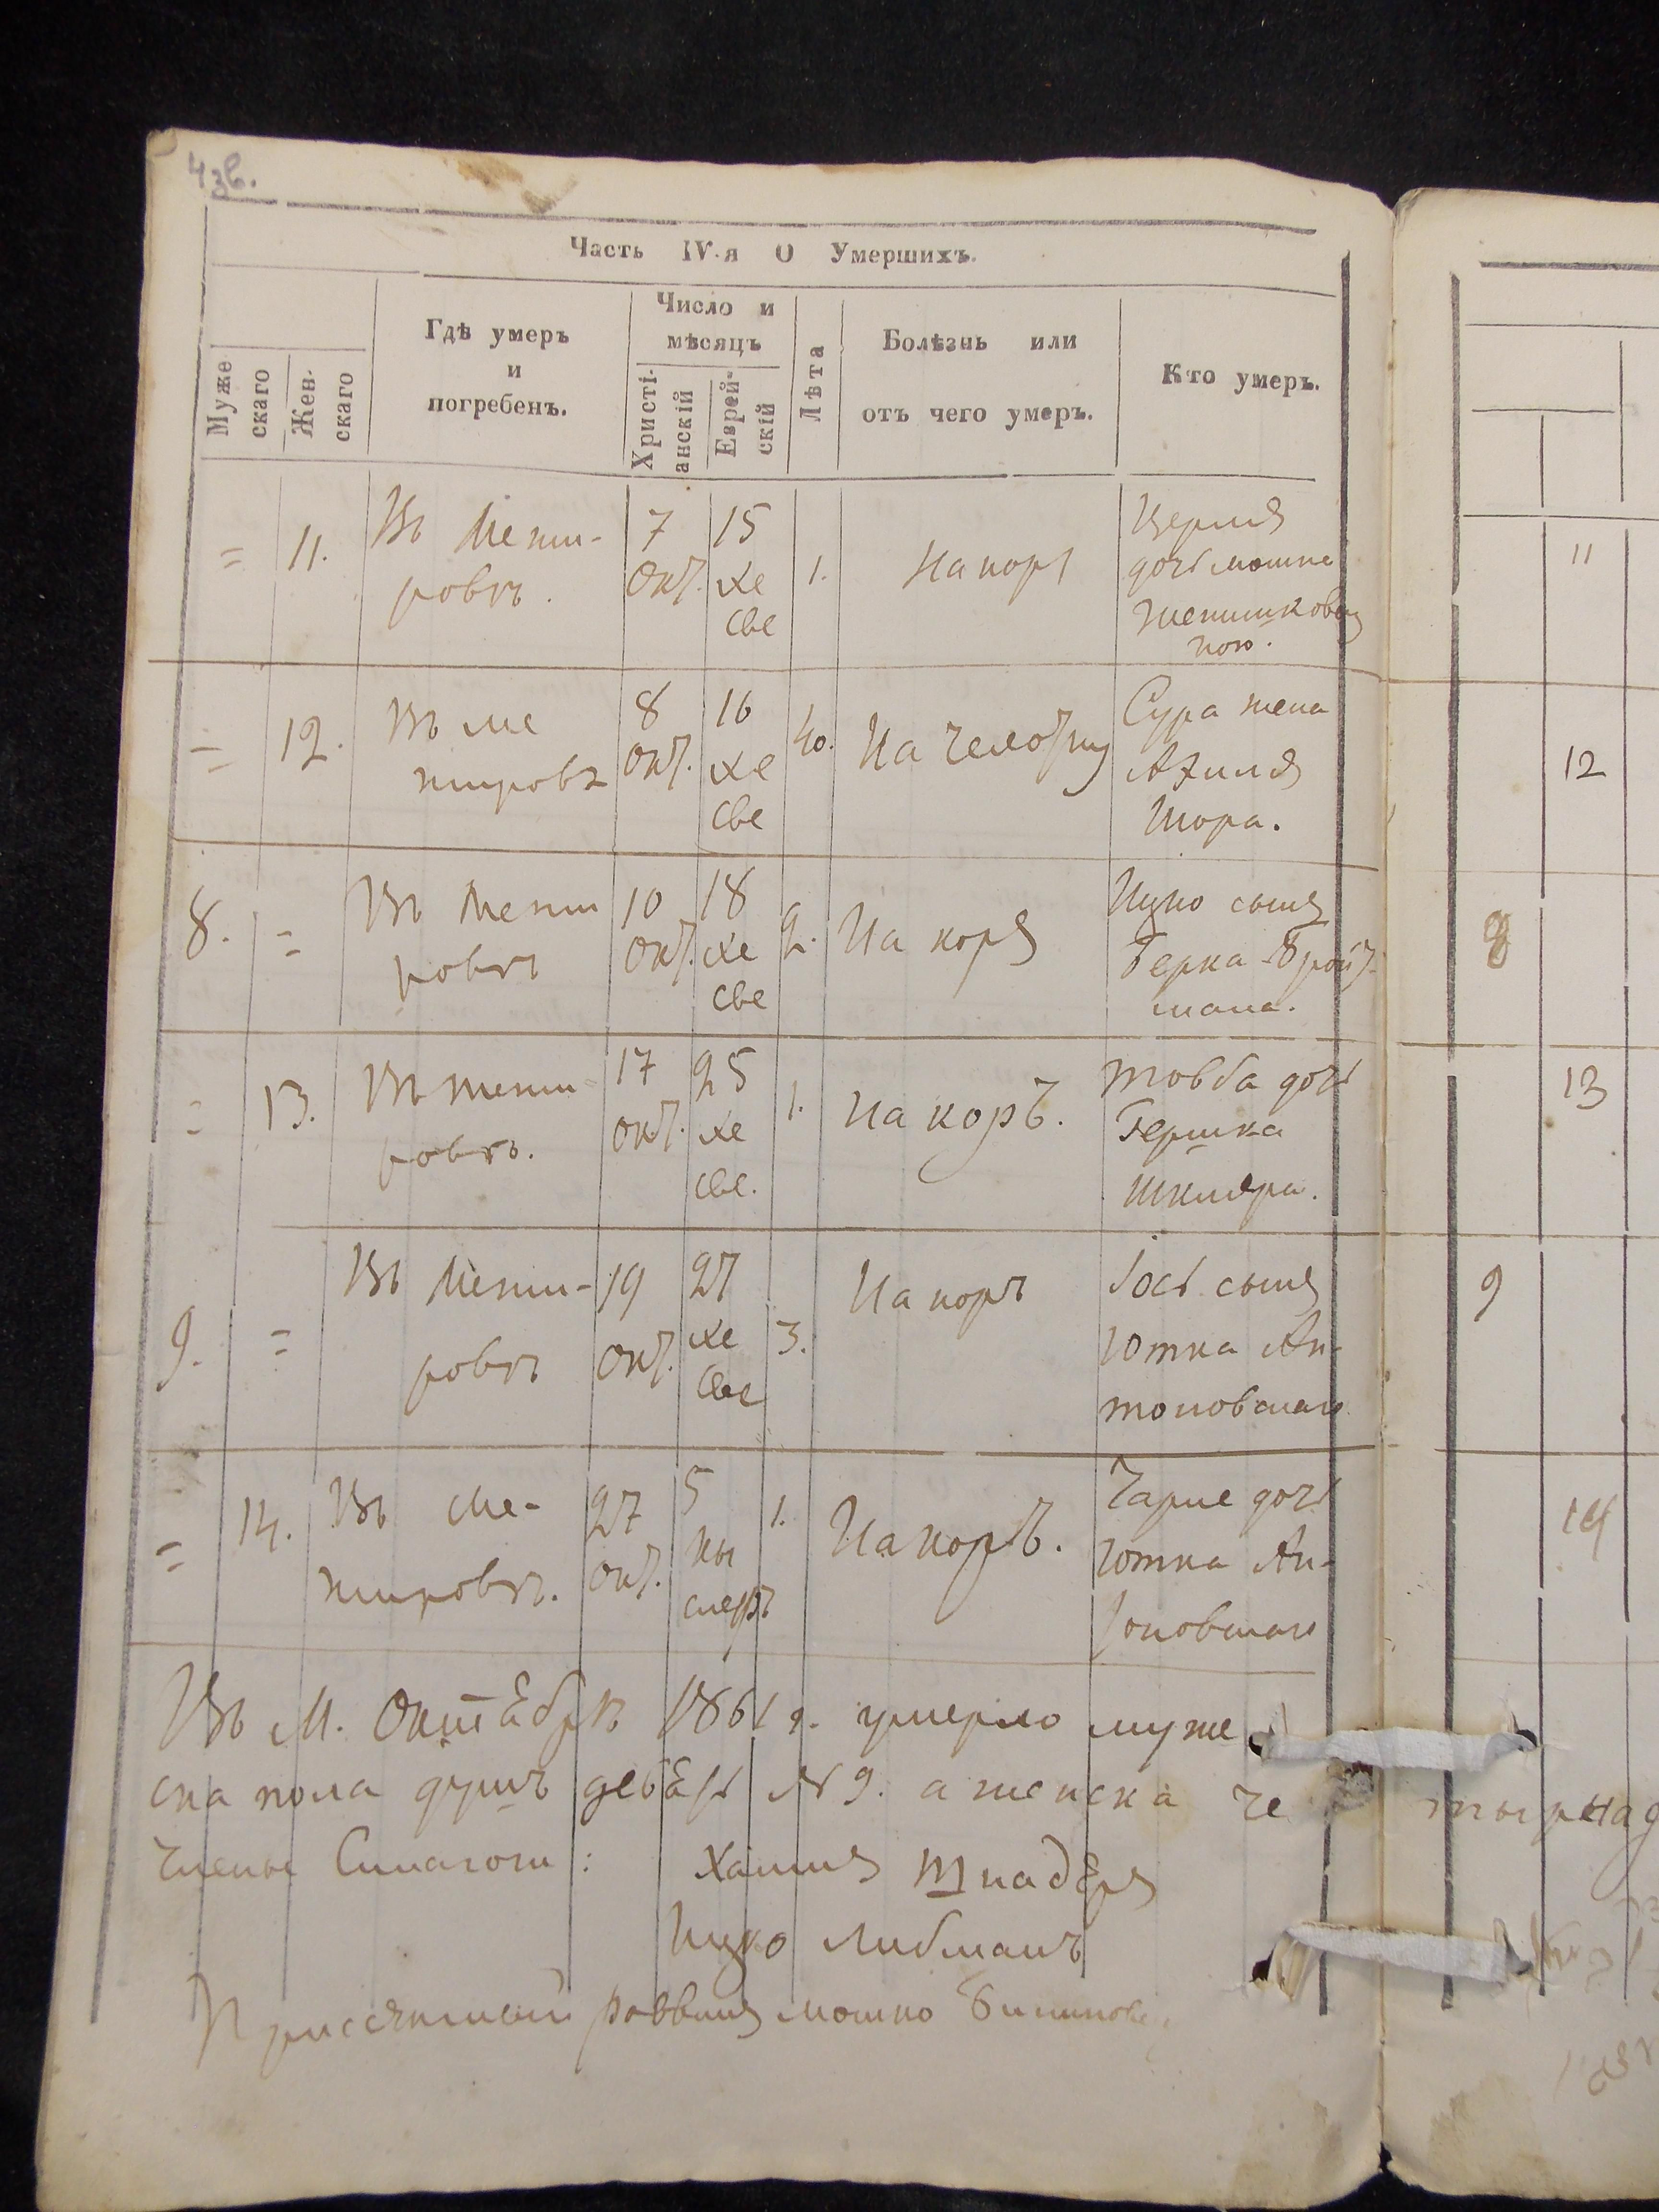 43б.
Часть IV-я О Умершихъ.
Муже
скаго
Жен-
скаго
Гдѣ умеръ
и
погребенъ.
Число и
мѣсяцъ
Христі-
анскій
Еврей-
скій
Лѣта
Болѣзнь или
отъ чего умеръ.
Кто умеръ.
= 11. Въ Неми-
ровѣ.
7
Окт.
15
хе
све
1.
На кор
дочь Мошка
ною.
11
= 12. Въ Не
мировѣ
8
Окт.
16
хе
све
40.
На
Сура жена
Шора.
12
8. = Въ Неми
ровѣ
10
Окт.
18
хе
све
2.
На коръ
Ицко сынъ
Берка Бройт-
мана.
8
= 13. Въ Неми-
ровѣ.
17
Окт.
25
хе
све.
1.
На коръ.
Товба дочь
Гершка
Шкляра.
13
9. = Въ Неми-
ровѣ
19
Окт.
27
хе
све
3.
На коръ
Іось сынъ
Ютка Ан-
тоновскаго
9
= 14. Въ Не-
мировѣ.
27
Окт.
5
ки
слефъ
1.
На коръ.
дочь
Ютка Ан-
тоновскаго
14
Въ М. Октябрѣ 1861 г. умерло муже
ска пола душъ девять № 9. а женска че тырнад
Члены Синагоги: Хаимъ Шнадеръ
Ицко Либманъ
Присяжный раввинъ Мошко